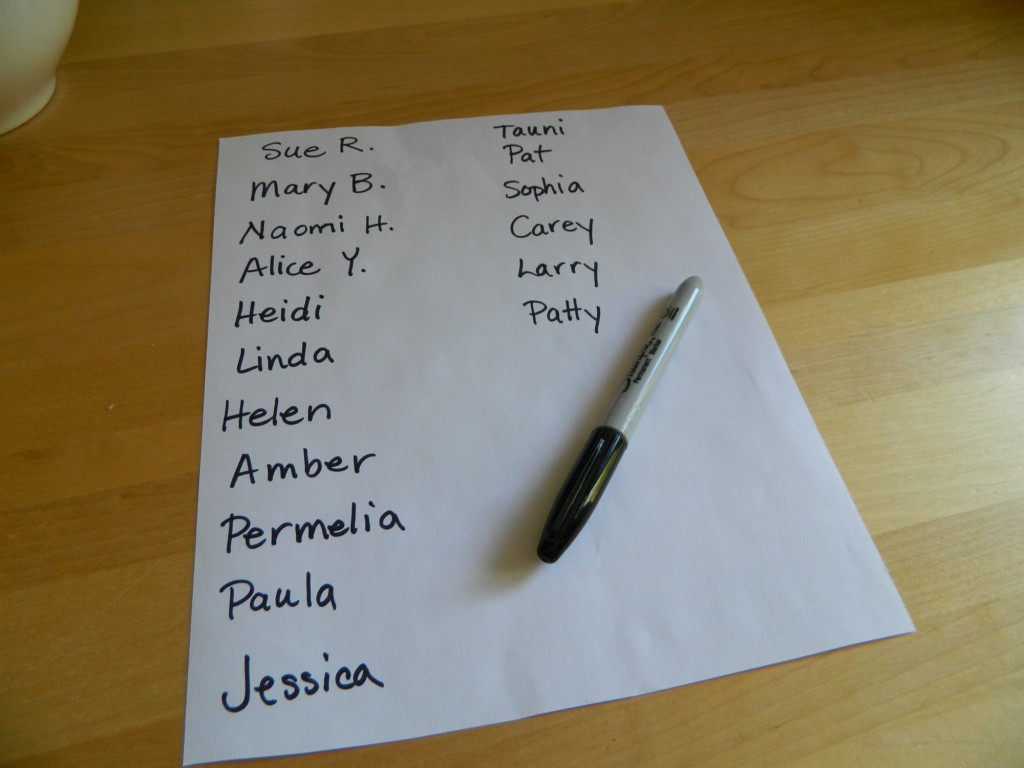 Sue R.
Mary B.
Naomi H.
Alice Y.
Heidi
Linda
Helen
Amber
Permelia
Paula
Jessica
Tauni
Pat
Sophia
Carey
Larry
Patty